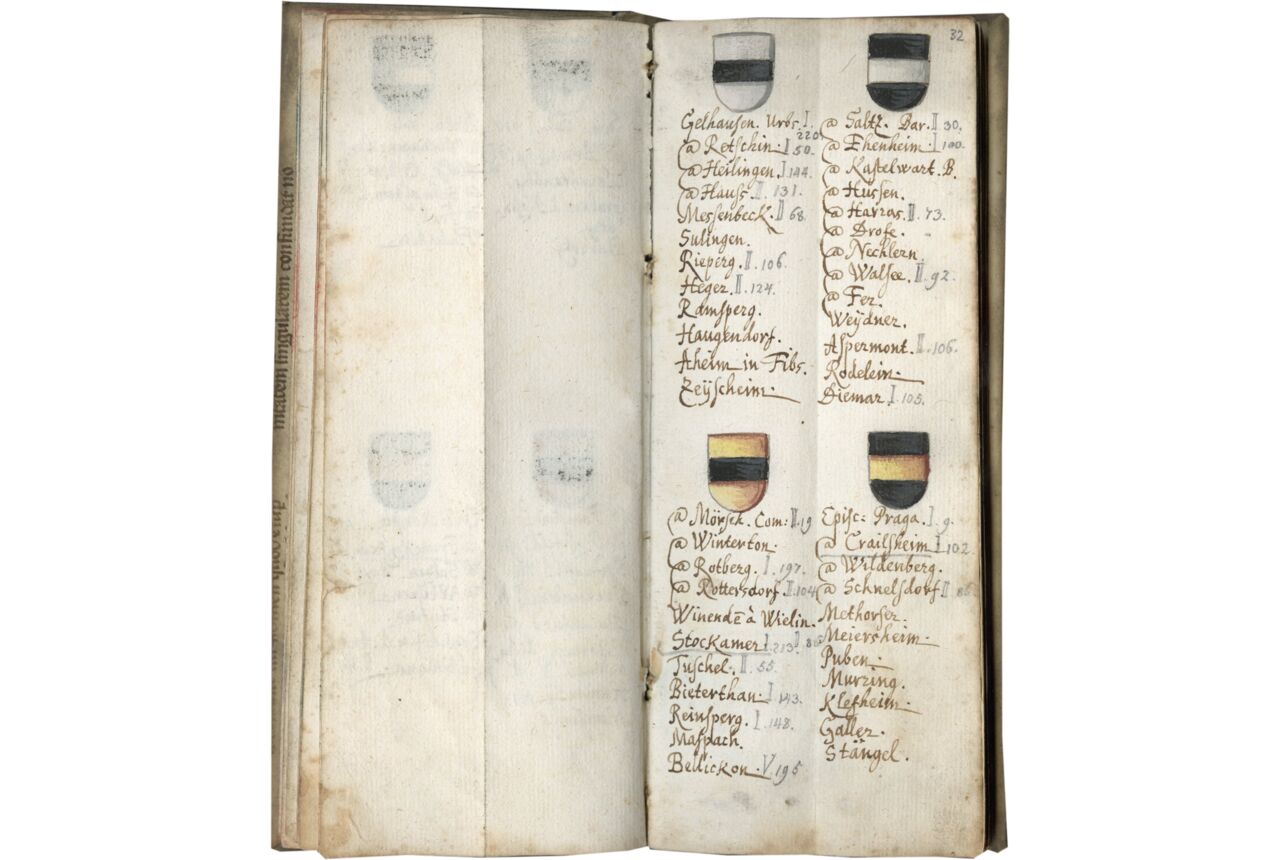 32
Gelhausen. Urbs. I.
220.
@ Retschin. I 50.
@ Heilingen. I 144.
@ Hauss. II. 131.
Messenbeck. II 68.
Sulingen.
Rieperg. II. 106.
Heger. II. 124.
Ramsperg.
Haugendorf.
Aheim in Fibs.
Zeÿscheim.
@ Saltz. Bar. II 30.
@ Ehenheim. I 100.
@ Kastelwart. B.
@ Hussen.
@ Harras. II. 73.
@ Drofe.
@ Necklern
@ Walsee. II. 92.
@ Fer.
Weÿdner.
Aspermont. II. 106.
Rodelein.
Diemar. I. 105.
@ Mörsch. Com: II. 19
@ Winterton.
@ Rotberg. I. 197.
@ Rottersdorf. II. 104
Winendē à Wielin.
Stockamer I. 213. II 86
Tuschel. II. 55.
Bieterthan. I 143.
Reinsperg. I. 148.
Maspach.
Bellickon. V. 195
Episc: Praga. I. 9.
@ Crailsheim I 102
@ Wildenberg.
@ Schnelsdorf II 86
Methorfer.
Meiersheim.
Puben.
Murring.
Klefheim.
Galler.
Stängel.